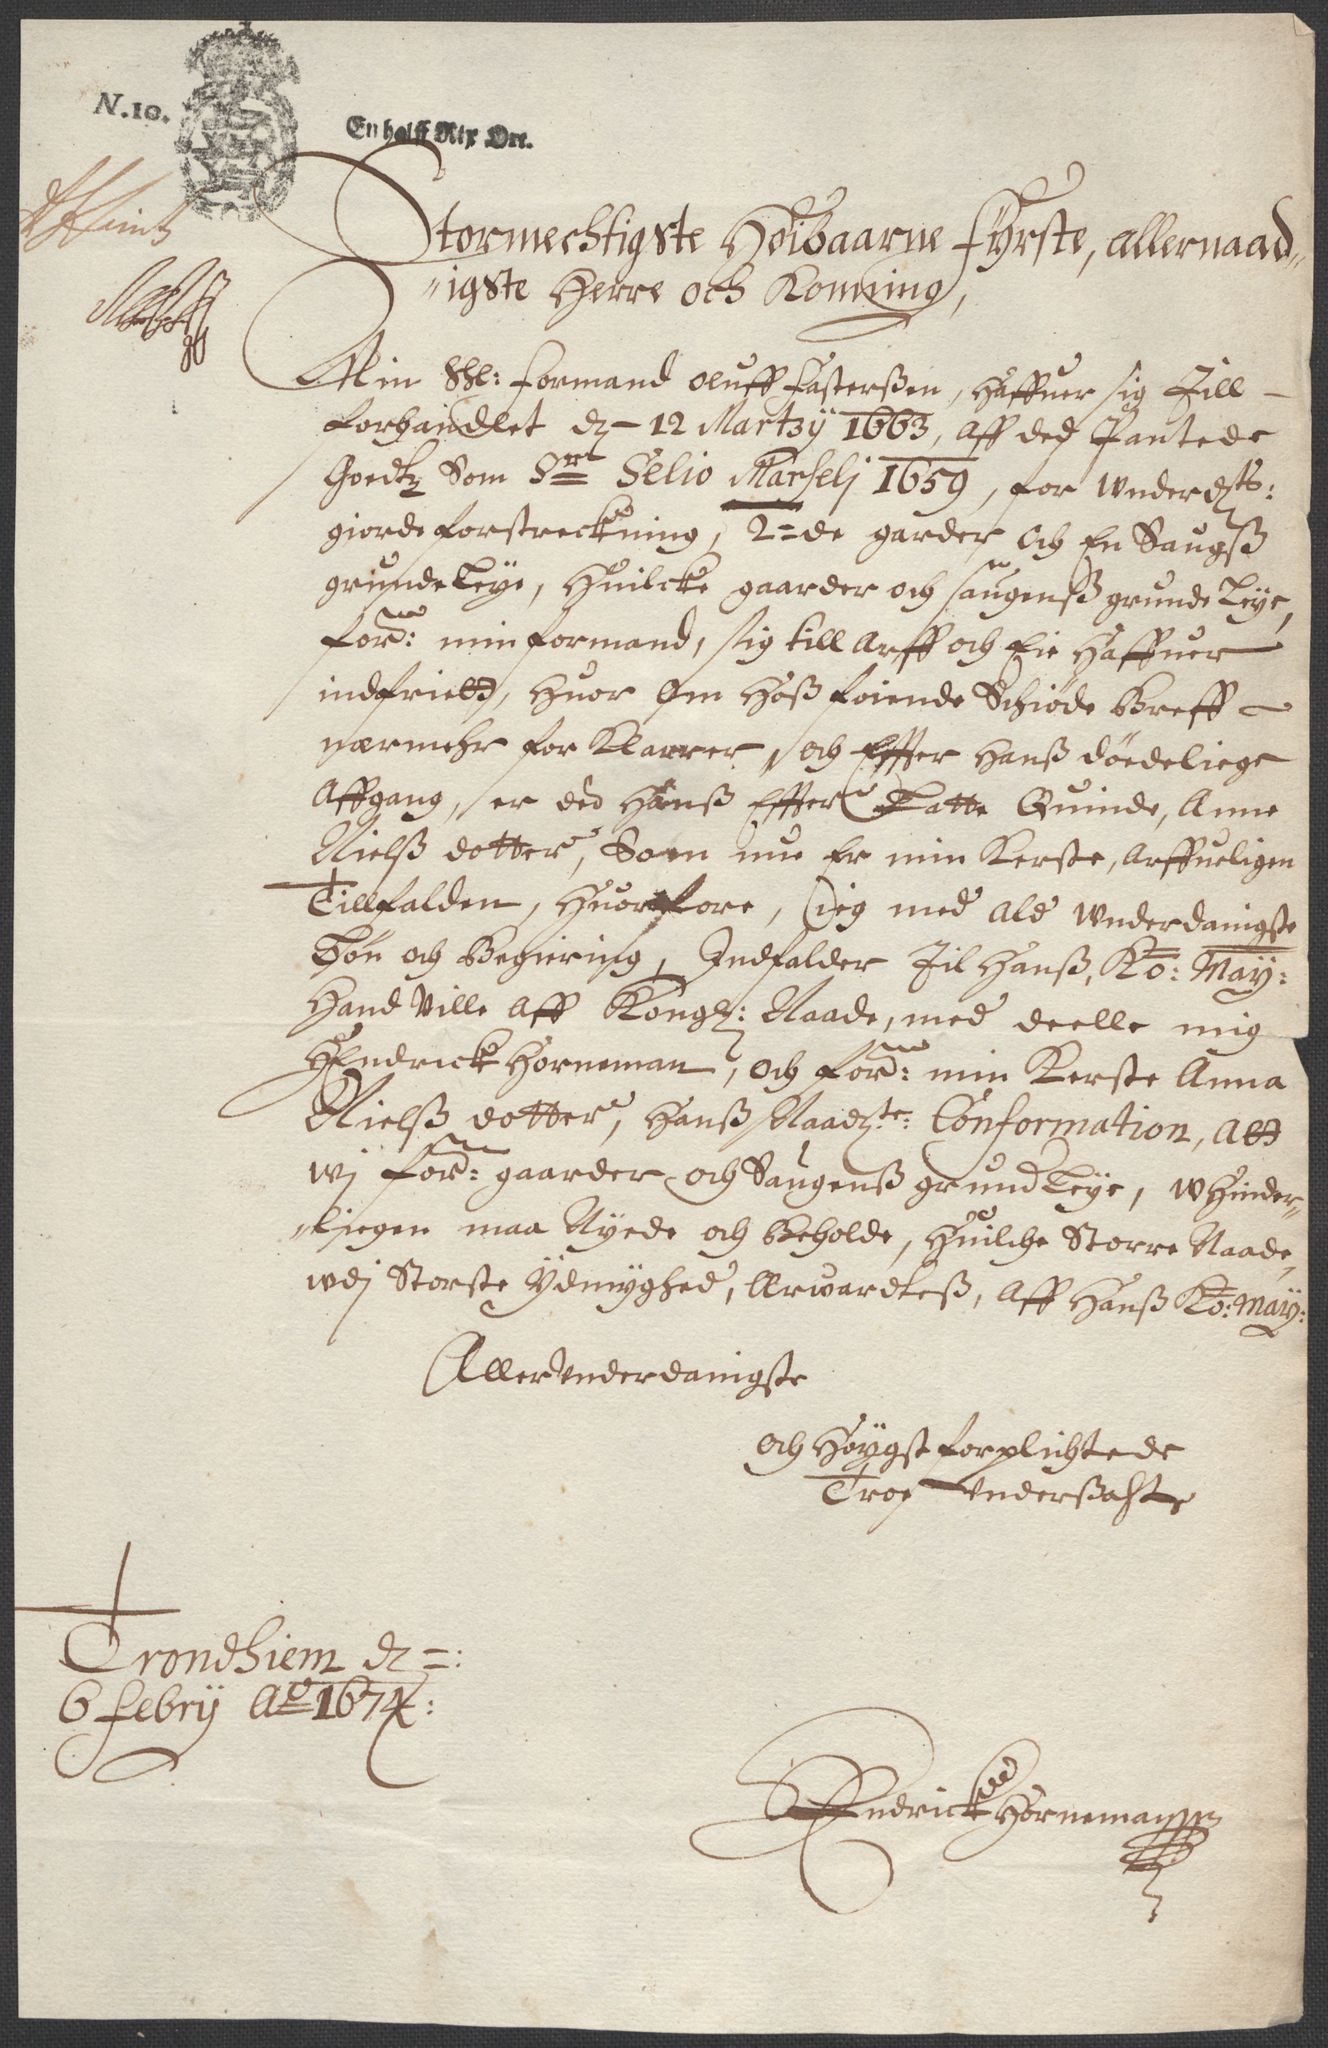 N. 10.
En halff Rix Ort.
Stormechtigste Høibaarne Fyrste, allernaad„
„igste Herre och Konning,
Min Shl: formand Oluff Fastersßen, Haffuer sig Till
forhandlet d 12 Martzÿ 1663, aff ded Pantede
Goedtz Som Sr Selio Marselj 1659, for underdts:
giorde forstreckning, 2=de garder och En Saugß
grundeleye, Huilcke gaarder och saugenß grunde leye,
ford: min formand, sig till arff och Eie Haffuer
indfriett, Huor om Hoß føiende Schiøde Breff
nærmehr for Klarer, och Effter Hanß dødeliege
Affgang, er ded Hanß Effter Latte Quinde, Anne
Nielß dotter, Som nue Er min Kerste, arffueligen
Tillfalden, Huorfore, ieg med ald underdanigste
Bøn och Begiering, Indfalder Til Hanß, Ko: May:
Hand Ville aff Kongl: Naade, med deelle mig
Hendrick Horneman, och ford: min Kerste Anna
Nielß dotter, Hanß Naadste: Conformation, att
wj ford: gaarder och Saugenß grund leye, uHinder„
„liegen maa Nyede och Beholde, Huilche Storre Naade,
udj Storste Ydmyghed, Erwardteß, aff Hanß Ko: May:
Allerunderdanigste
och Høygst forplichtede
Troe underßaatte
Trondhiem d =:
6 Febrÿ Ao 1674:
Hendrick Hornemann